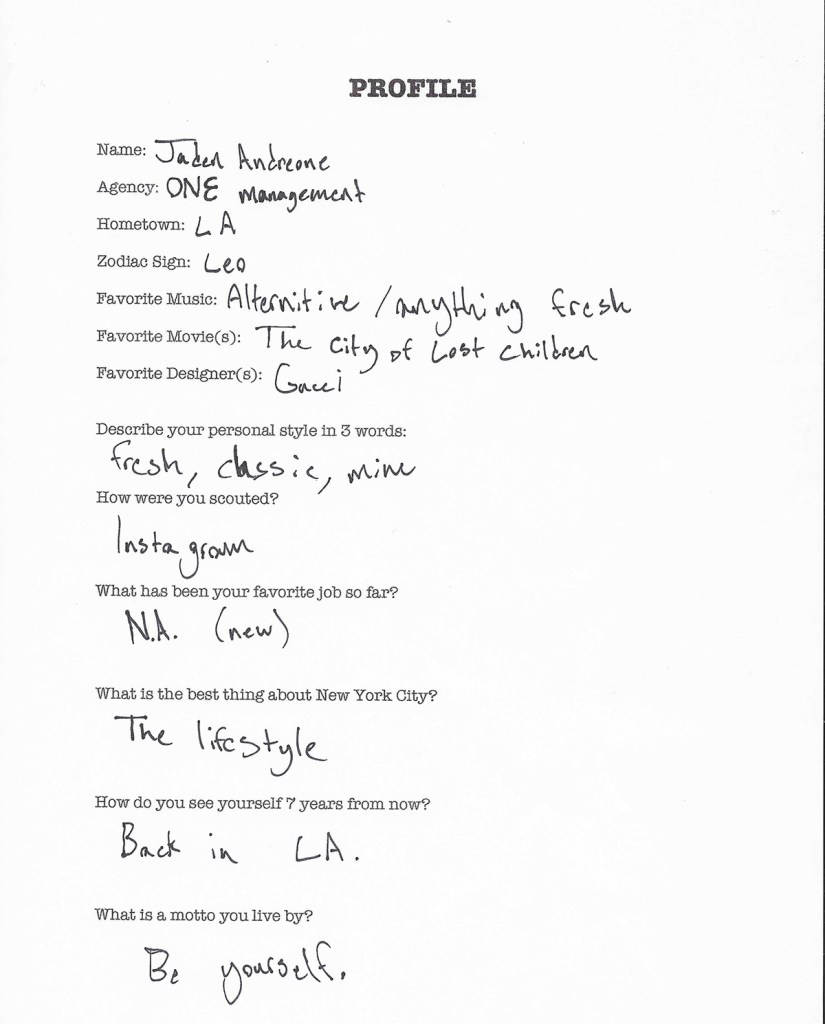 PROFILE
Name: Jaden Andreone
Agency: ONE management
Hometown: LA
Zodiac Sign: Leo
Favorite Music: Alternitive / anything fresh
Favorite Movie(s): The City of Lost Children
Favorite Designer(s): Gucci
Describe your personal style in 3 words:
fresh, classic, mine
How were you scouted?
Instagram
What has been your favorite job so far?
N.A. (new)
What is the best thing about New York City?
The lifestyle
How do you see yourself 7 years from now?
Back in LA.
What is a motto you live by?
Be yourself.